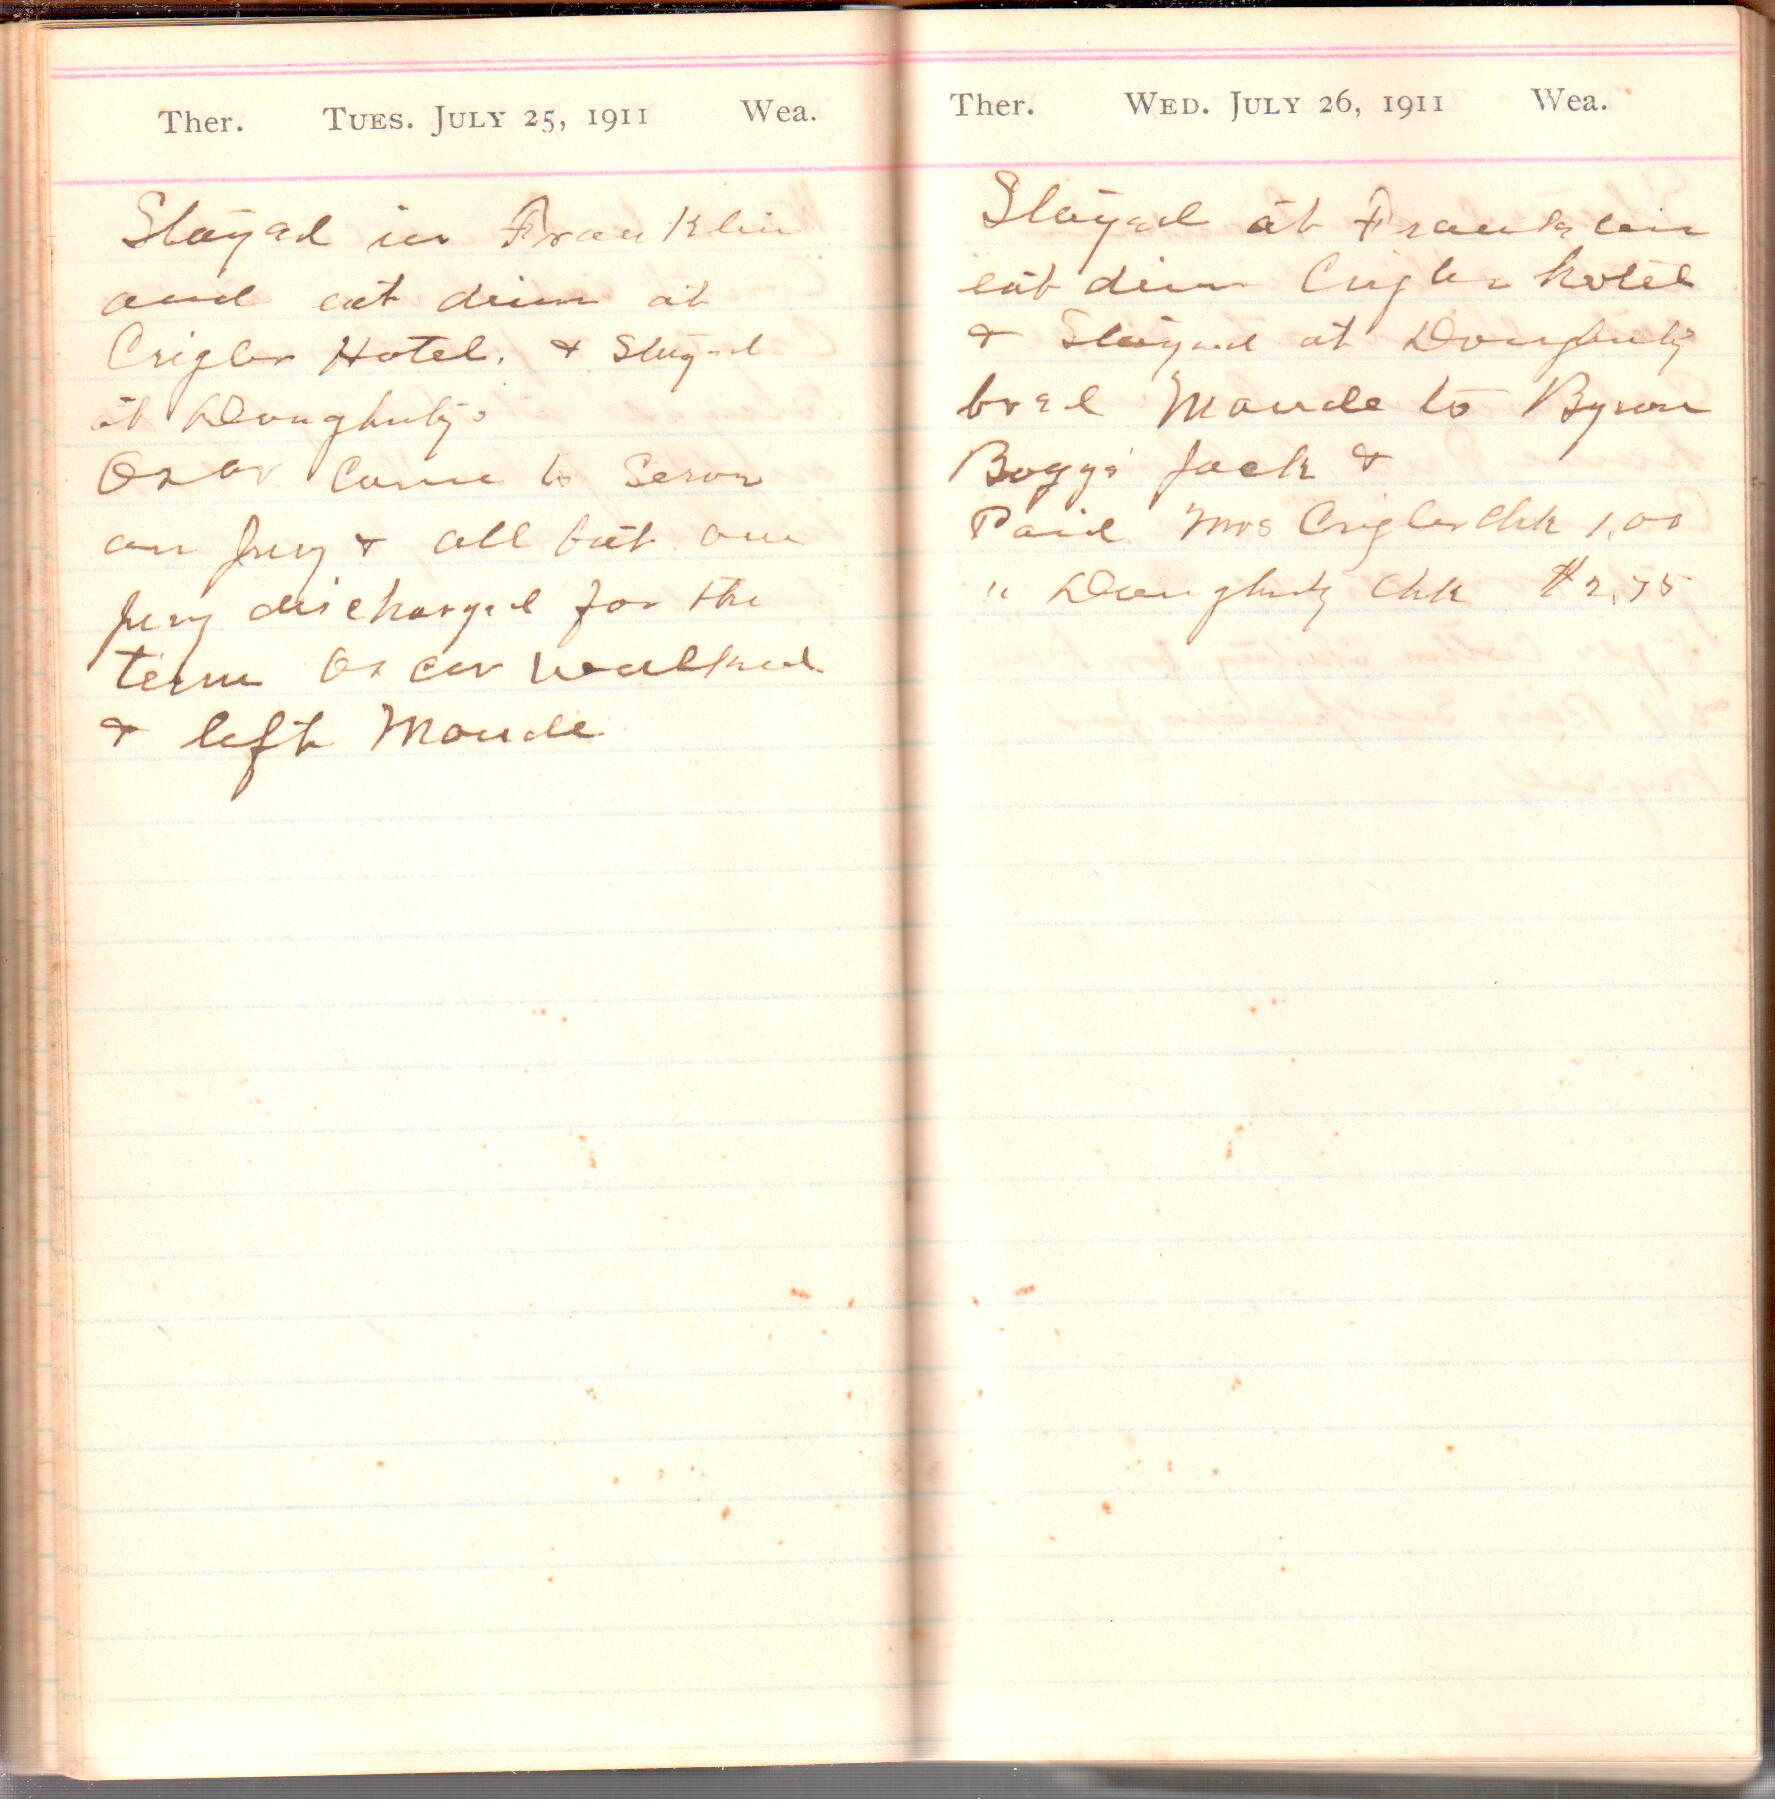 Ther. Tues. July 25, 1911 Wea.
Stayed in Franklin
and eat dinn at
Crigler Hotel. & Stayed
at Doughertys
Oscar Came to Serve
on Jury & all but one
Jury discharged for the
term Oscar walked
& left Maude
Ther. Wed. July 26, 1911 Wea.
Stayed at Franklin
eat dinn Crigler hotel
& Stayed at Dougherty
bred Maude to Byron
Boggs' Jack &
Paid Mrs Crigler Chk 1.00
" Dougherty Chk $2.75